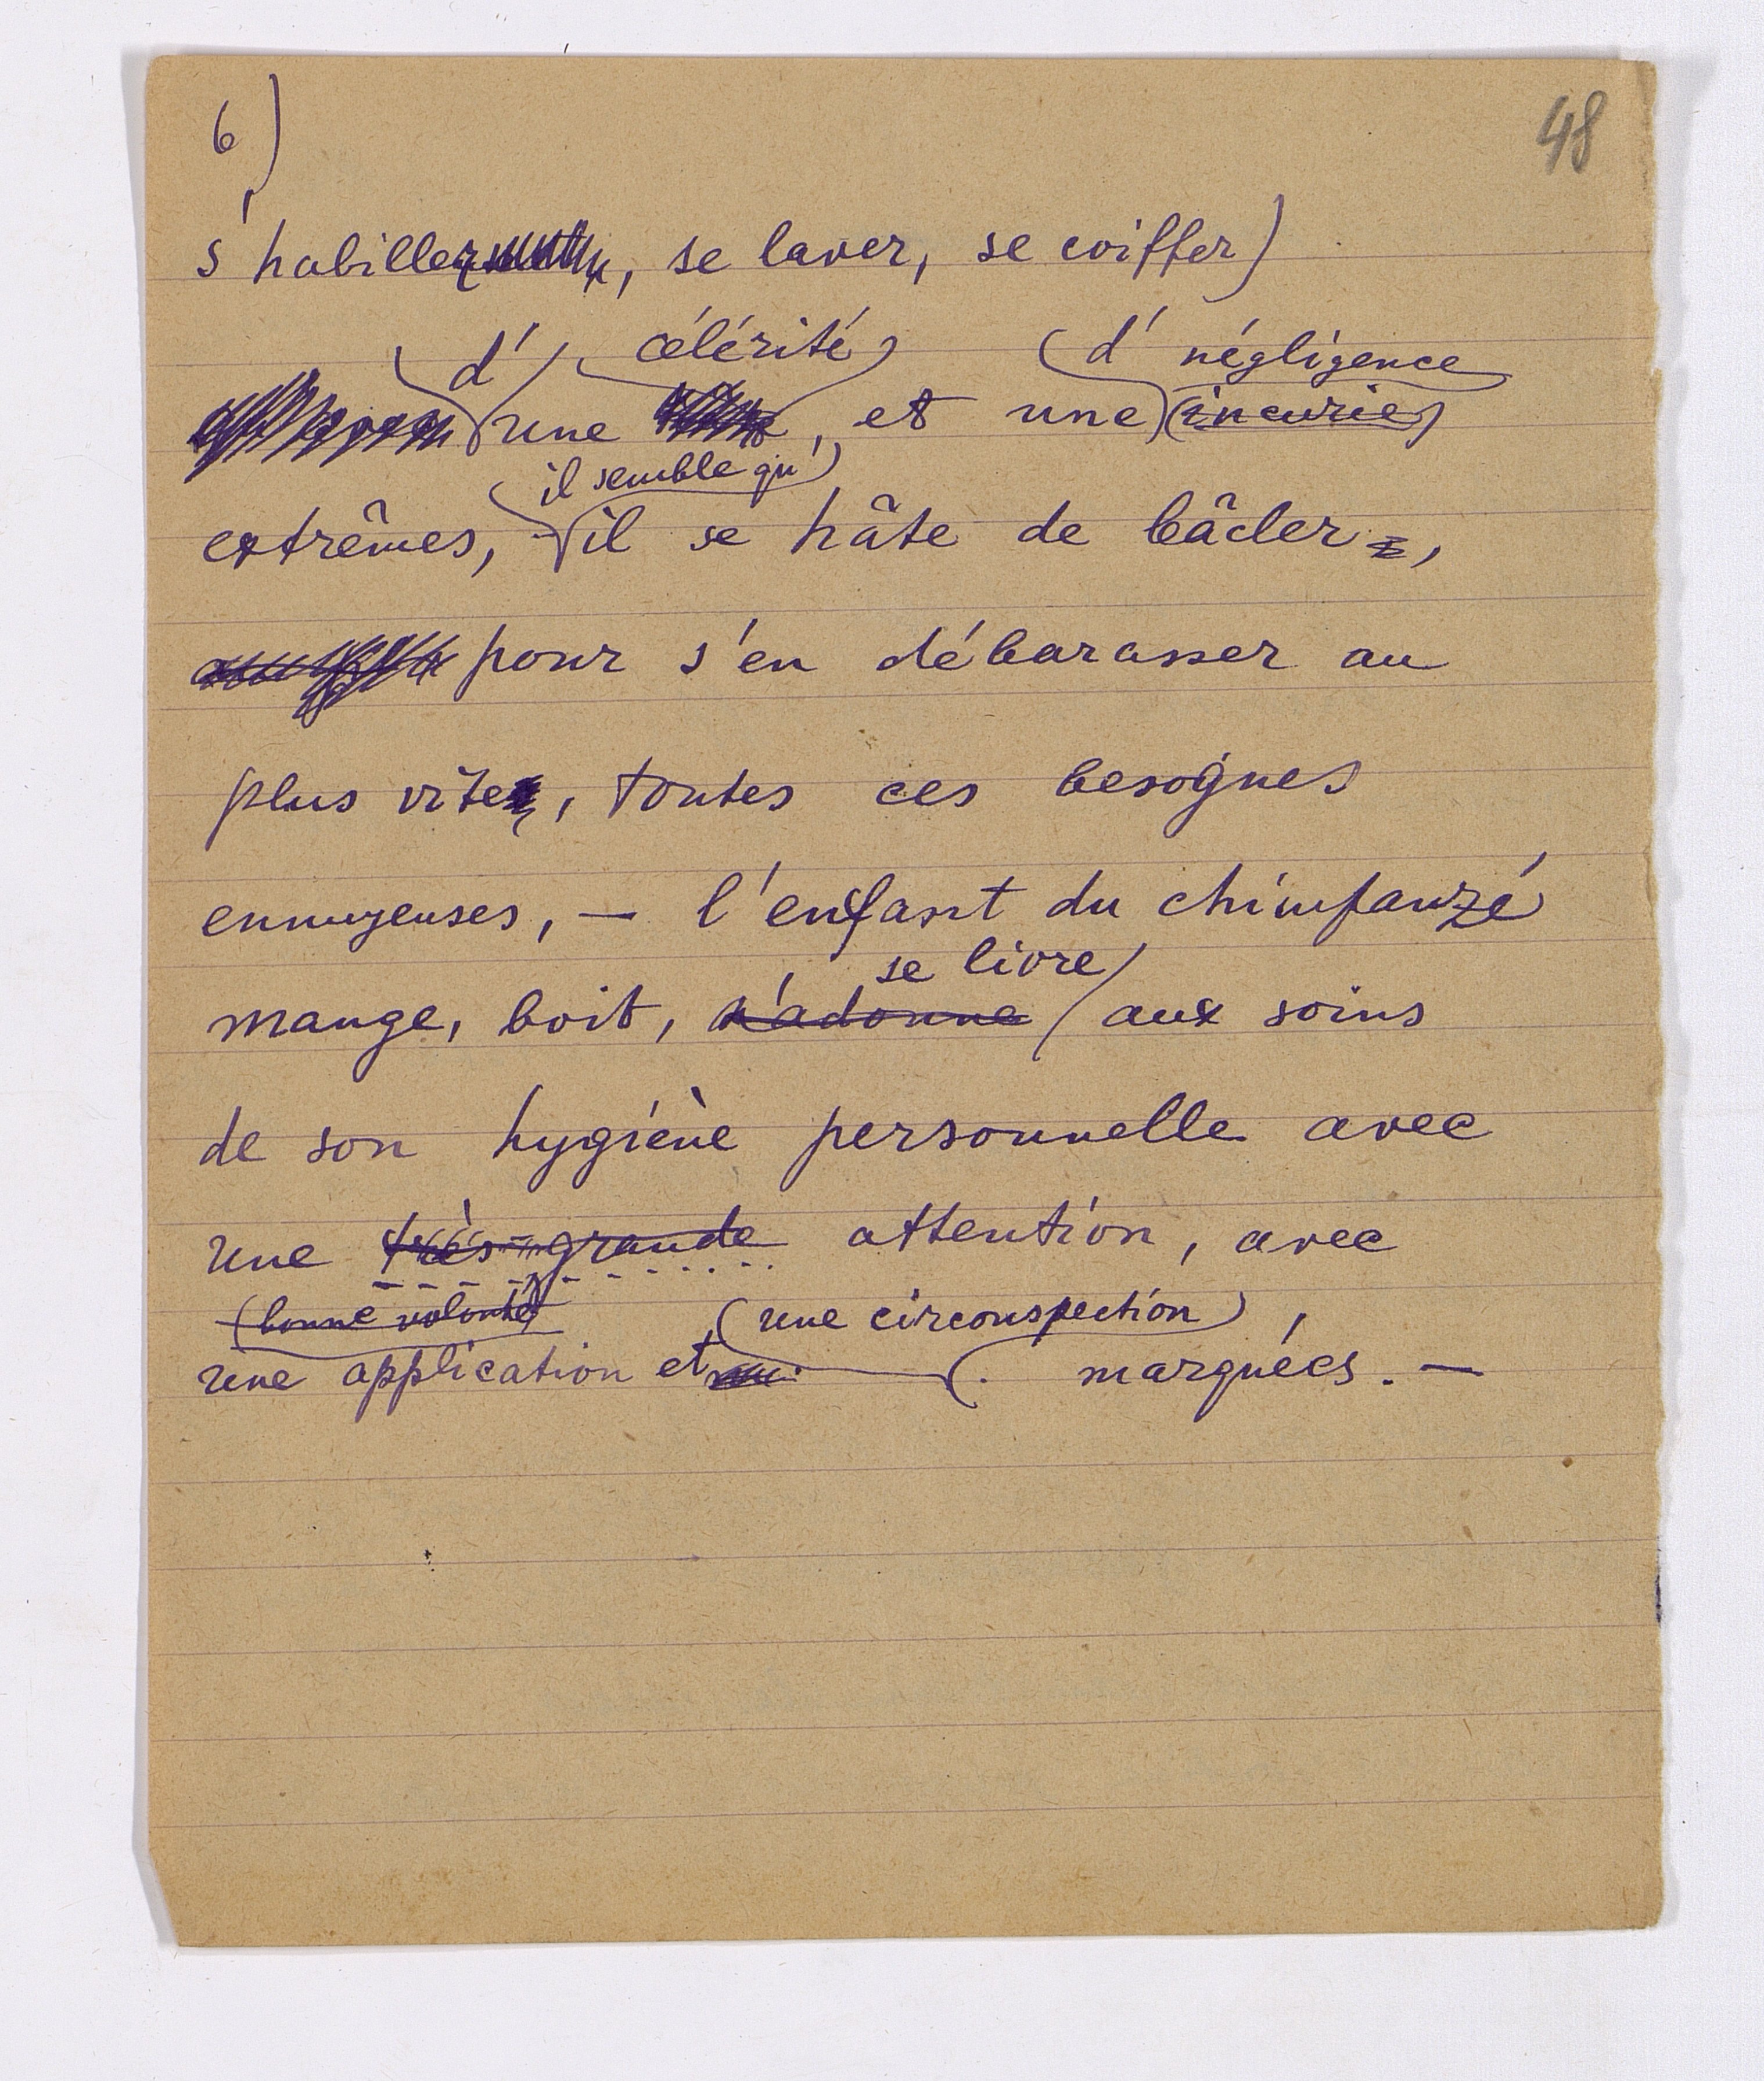 6)
48
s'habiller, se laver, se coiffer)
d' célérité d' négligence
une , et une (incurie)
il semble qu'
extrêmes, il se hâte de bâcler,
pour s'en débarasser au
plus vite, toutes ces besognes
ennuyeuses, — l'enfant du chimpanzé
se livre
mange, boit, s'adonne aux soins
de son hygiène personnelle avec
une très grande attention, avec
(bonne volonté) (une circonspection),
une application et marquées. —